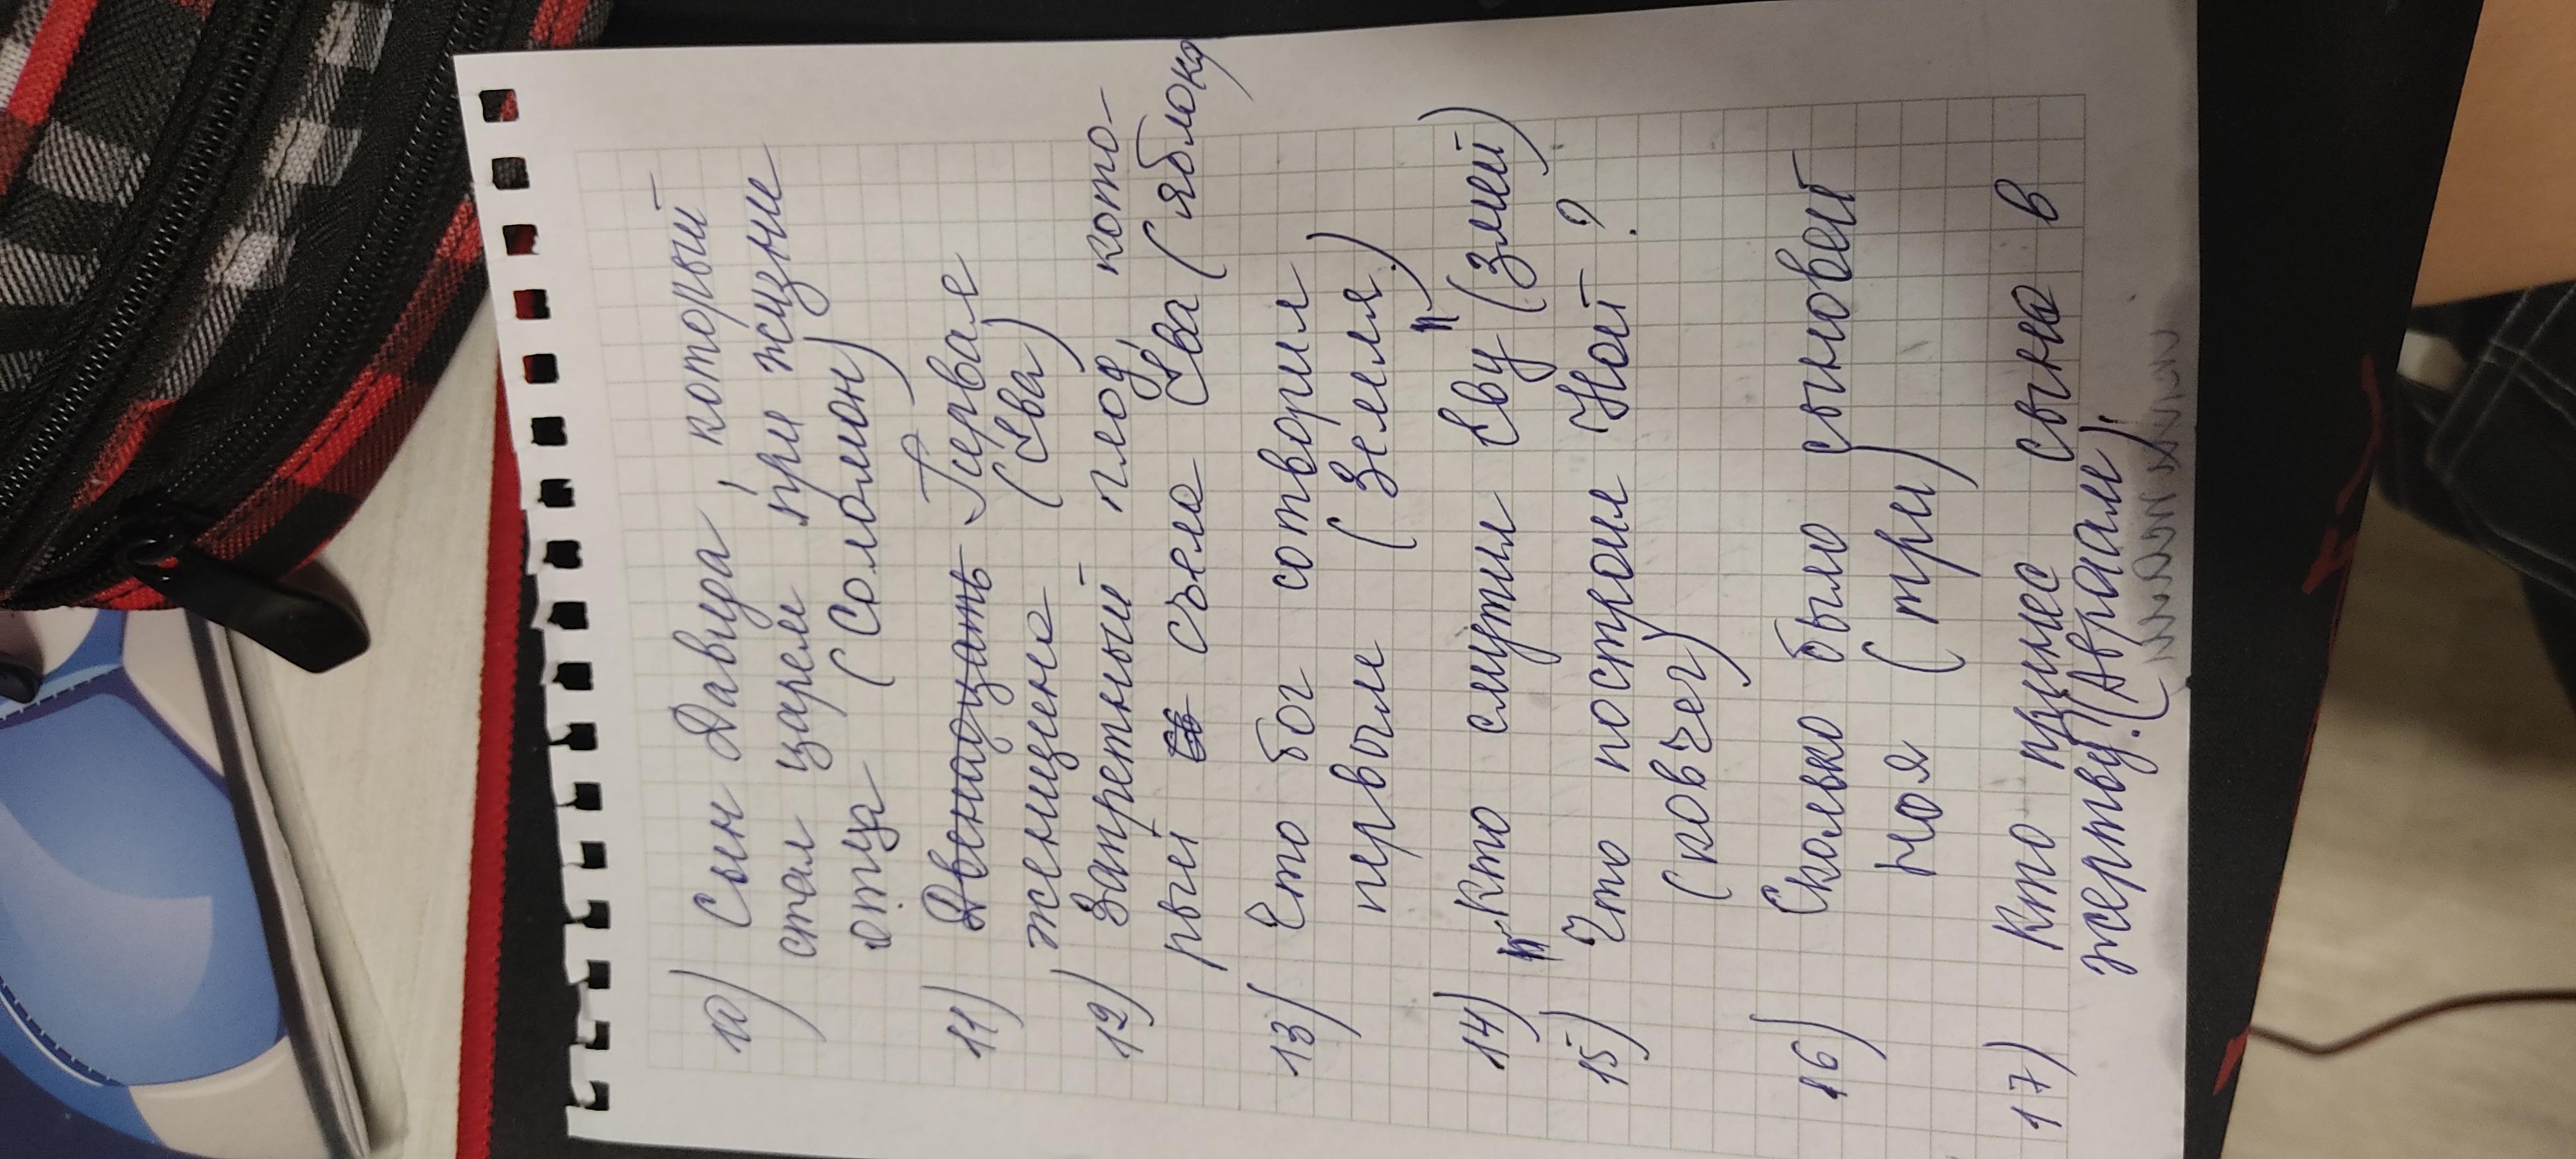 10) Сын Давида, который
стал царем при жизни
отца (Соломон)
11) Двенадцать Первая
женщина (Ева)
12) Запретный плод, кото-
рый съела Ева (яблоко)
13) Что бог сотворил
первым (Земля.)
14) "Кто смутил Еву" (Змей)
15) Что построил Ной?
(ковчег)
16) Сколько было сыновей
Ноя (три)
17) Кто принес сына в
жертву. (Авраам)